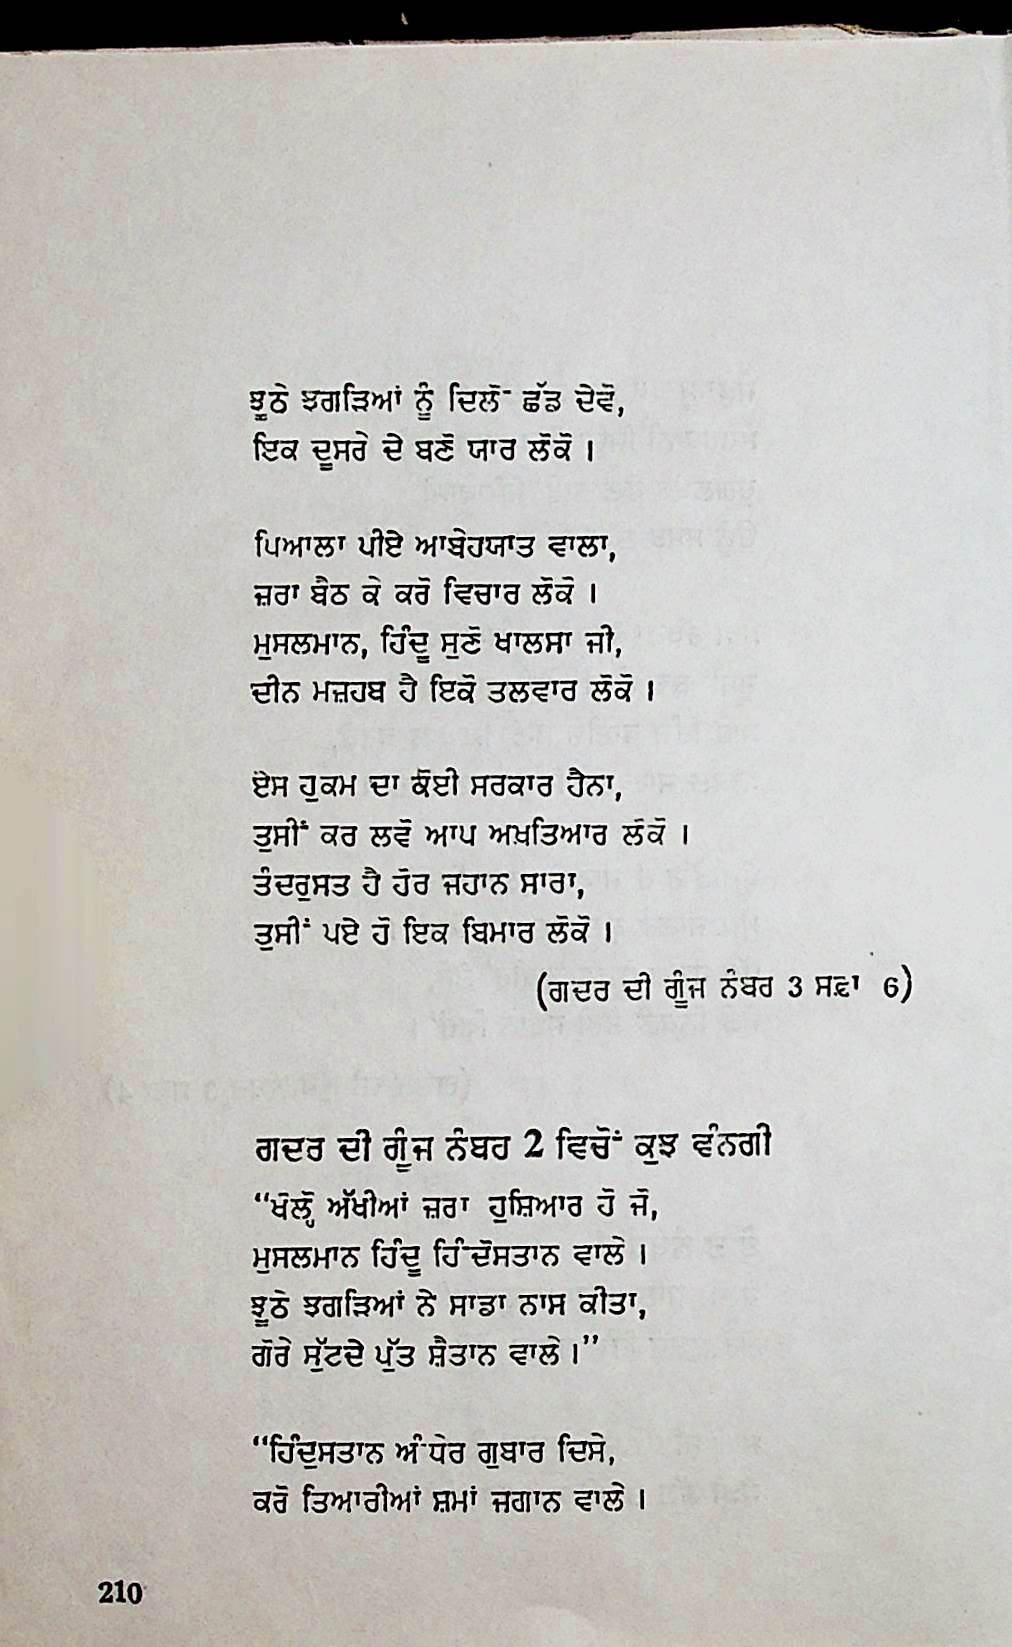 ਝੂਠੇ ਝਗੜਿਆਂ ਨੂੰ ਦਿਲੋਂ ਛੱਡ ਦੇਵੋ,
ਇਕ ਦੂਸਰੇ ਦੇ ਬਣੋ ਯਾਰ ਲੋਕੋ ।
ਪਿਆਲਾ ਪੀਏ ਆਬੇਹਯਾਤ ਵਾਲਾ,
ਜ਼ਰਾ ਬੈਠ ਕੇ ਕਰੋ ਵਿਚਾਰ ਲੋਕੋ ।
ਮੁਸਲਮਾਨ, ਹਿੰਦੂ ਸੁਣੋ ਖਾਲਸਾ ਜੀ,
ਦੀਨ ਮਜ਼ਹਬ ਹੈ ਇਕੋ ਤਲਵਾਰ ਲੋਕੋ ।
ਏਸ ਹੁਕਮ ਦਾ ਕੋਈ ਸਰਕਾਰ ਹੈਨਾ,
ਤੁਸੀਂ ਕਰ ਲਵੋ ਆਪ ਅਖ਼ਤਿਆਰ ਲੋਕੋ ।
ਤੰਦਰੁਸਤ ਹੈ ਹੋਰ ਜਹਾਨ ਸਾਰਾ,
ਤੁਸੀਂ ਪਏ ਹੋ ਇਕ ਬਿਮਾਰ ਲੋਕੋ ।
(ਗਦਰ ਦੀ ਗੂੰਜ ਨੰਬਰ 3 ਸਫ਼ਾ 6)
ਗਦਰ ਦੀ ਗੂੰਜ ਨੰਬਰ 2 ਵਿਚੋਂ ਕੁਝ ਵੰਨਗੀ
“ਖੋਲ੍ਹੋ ਅੱਖੀਆਂ ਜ਼ਰਾ ਹੁਸ਼ਿਆਰ ਹੋ ਜੋ,
ਮੁਸਲਮਾਨ ਹਿੰਦੂ ਹਿੰਦੋਸਤਾਨ ਵਾਲੇ ।
ਝੂਠੇ ਝਗੜਿਆਂ ਨੇ ਸਾਡਾ ਨਾਸ ਕੀਤਾ,
ਗੋਰੇ ਸੁੱਟਦੇ ਪੁੱਤ ਸ਼ੈਤਾਨ ਵਾਲੇ ।”
“ਹਿੰਦੁਸਤਾਨ ਅੰਧੇਰ ਗੁਬਾਰ ਦਿਸੇ,
ਕਰੋ ਤਿਆਰੀਆਂ ਸ਼ਮਾਂ ਜਗਾਨ ਵਾਲੇ ।
210